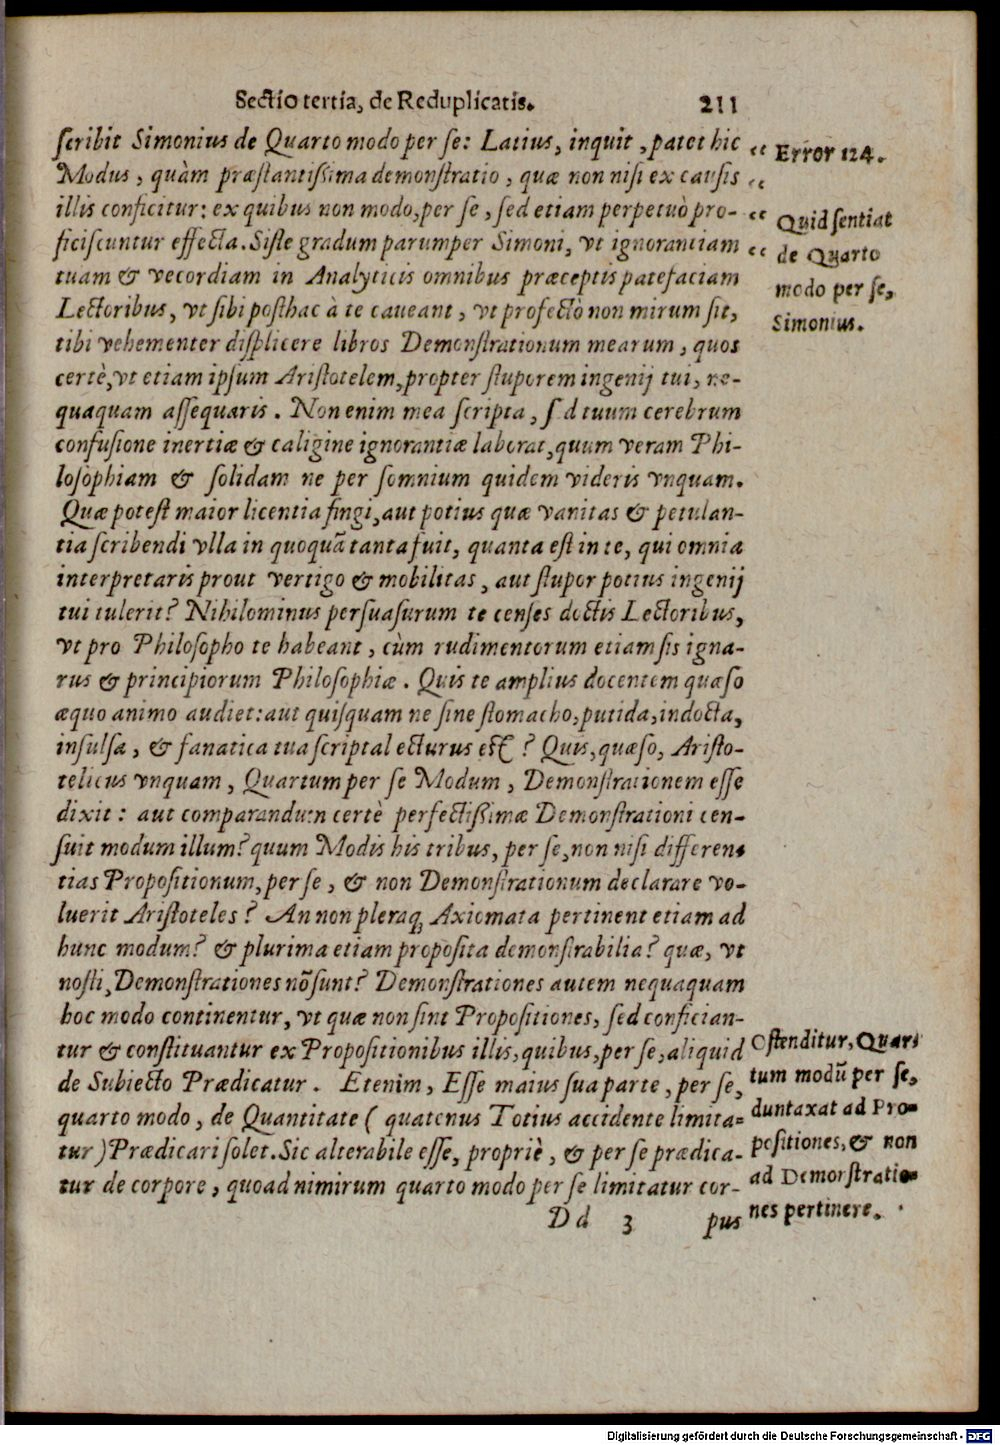 Sectio tertia, de Reduplicatis. 211
scribit Simonius de Quarto modo per se: Latius, inquit, patet hic
Modus, quàm præstantissima demonstratio, quæ non nisi ex causis
illis conficitur: ex quibus non modo, per se, sed etiam perpetuò pro-
ficiscuntur effecta. Siste gradum parumper Simoni, vt ignorantiam
tuam & vecordiam in Analyticis omnibus præceptis patefaciam
Lectoribus, vt sibi posthac à te caueant, vt profectò non mirum sit,
tibi vehementer displicere libros Demonstrationum mearum, quos
certè, vt etiam ipsum Aristotelem, propter stuporem ingenij tui, ne-
quaquam assequaris. Non enim mea scripta, s d tuum cerebrum
confusione inertiæ & caligine ignorantiæ laborat, quum veram Phi-
losophiam & solidam ne per somnium quidem videris vnquam.
Quæ potest maior licentia fingi, aut potius quæ vanitas & petulan-
tia scribendi vlla in quoquã tanta fuit, quanta est in te, qui omnia
interpretaris prout vertigo & mobilitas, aut stupor potius ingenij
tui tulerit? Nihilominus persuasurum te censes doctis Lectoribus,
vt pro Philosopho te habeant, cùm rudimentorum etiam sis igna-
rus & principiorum Philosophiæ. Quis te amplius docentem quæso
æquo animo audiet: aut quisquam ne sine stomacho, putida, indocta,
insulsa, & fanatica tua scripta lecturus est? Quis, quæso, Aristo-
telicus vnquam, Quartum per se Modum, Demonstrationem esse
dixit: aut comparandum certè perfectissimæ Demonstrationi cen-
suit modum illum? quum Modis his tribus, per se, non nisi differen-
tias Propositionum, per se, & non Demonstrationum declarare vo-
luerit Aristoteles? An non pleraq; Axiomata pertinent etiam ad
hunc modum? & plurima etiam proposita demonstrabilia? quæ, vt
nosti, Demonstrationes nõ sunt? Demonstrationes autem nequaquam
hoc modo continentur, vt quæ non sint Propositiones, sed confician-
tur & constituantur ex Propositionibus illis, quibus, per se, aliquid
de Subiecto Prædicatur. Etenim, Esse maius sua parte, per se,
quarto modo, de Quantitate (quatenus Totius accidente limita-
tur) Prædicari solet. Sic alterabile esse, propriè, & per se prædica-
tur de corpore, quoad nimirum quarto modo per se limitatur cor-
Dd 3 pus
“ Error 124.
“
“ Quid sentiat
“ de Quarto
modo per se,
Simonius.
Ostenditur, Quar-
tum modũ per se,
duntaxat ad Pro-
positiones, & non
ad Demonstratio-
nes pertinere.
Digitalisierung gefördert durch die Deutsche Forschungsgemeinschaft - DFG